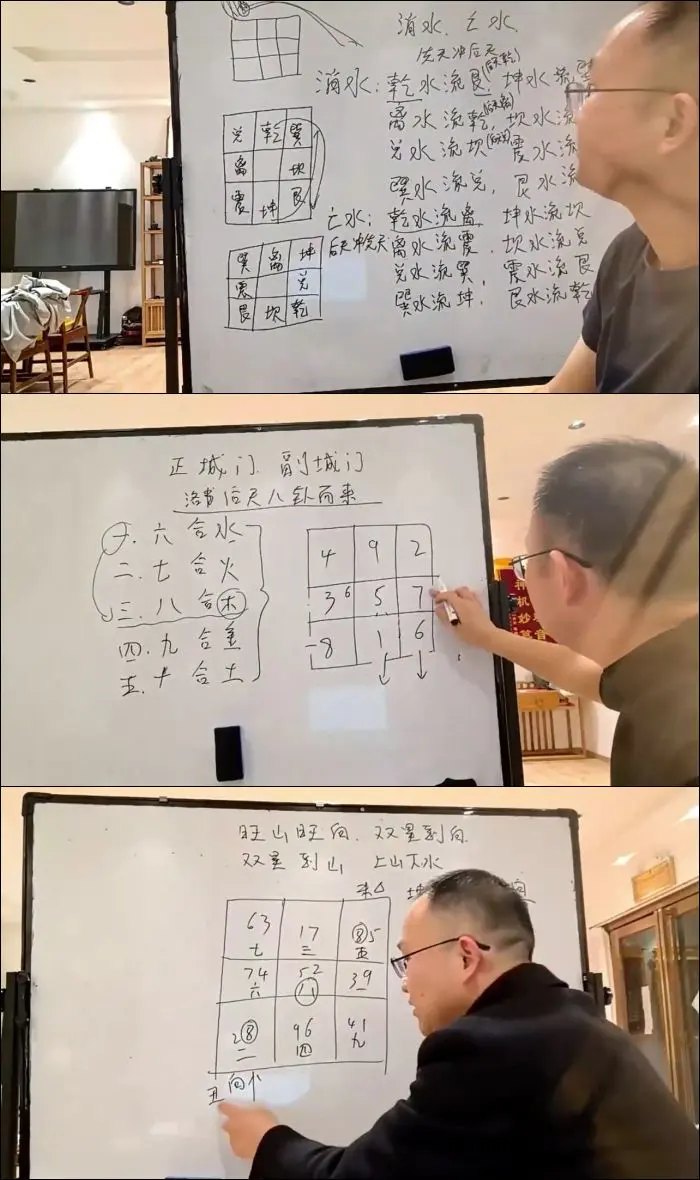 消水、亡水
先天冲后天
消水:乾水流艮(后天乾) 坤水流
离水流乾(后天离), 坎水流
兑水流坎(后天兑), 震水流
巽水流兑, 艮水流
亡水:乾水流离 坤水流坎
后天冲先天 离水流震, 坎水流兑
兑水流巽, 震水流艮
巽水流坤, 艮水流乾
兑 乾 巽
离 坎
震 坤 艮
巽 离 坤
震 兑
艮 坎 乾
正城门、副城门
洛书后天八卦而来
一、六合水
二、七合火
三、八合木
四、九合金
五、十合土
4 9 2
3 6 5 7
8 1 6
旺山旺向、双星到向
双星到山 上山下水
63 17 85
七 三 五
74 52 39
六 八 一
28 96 41
二 四 九
丑 向